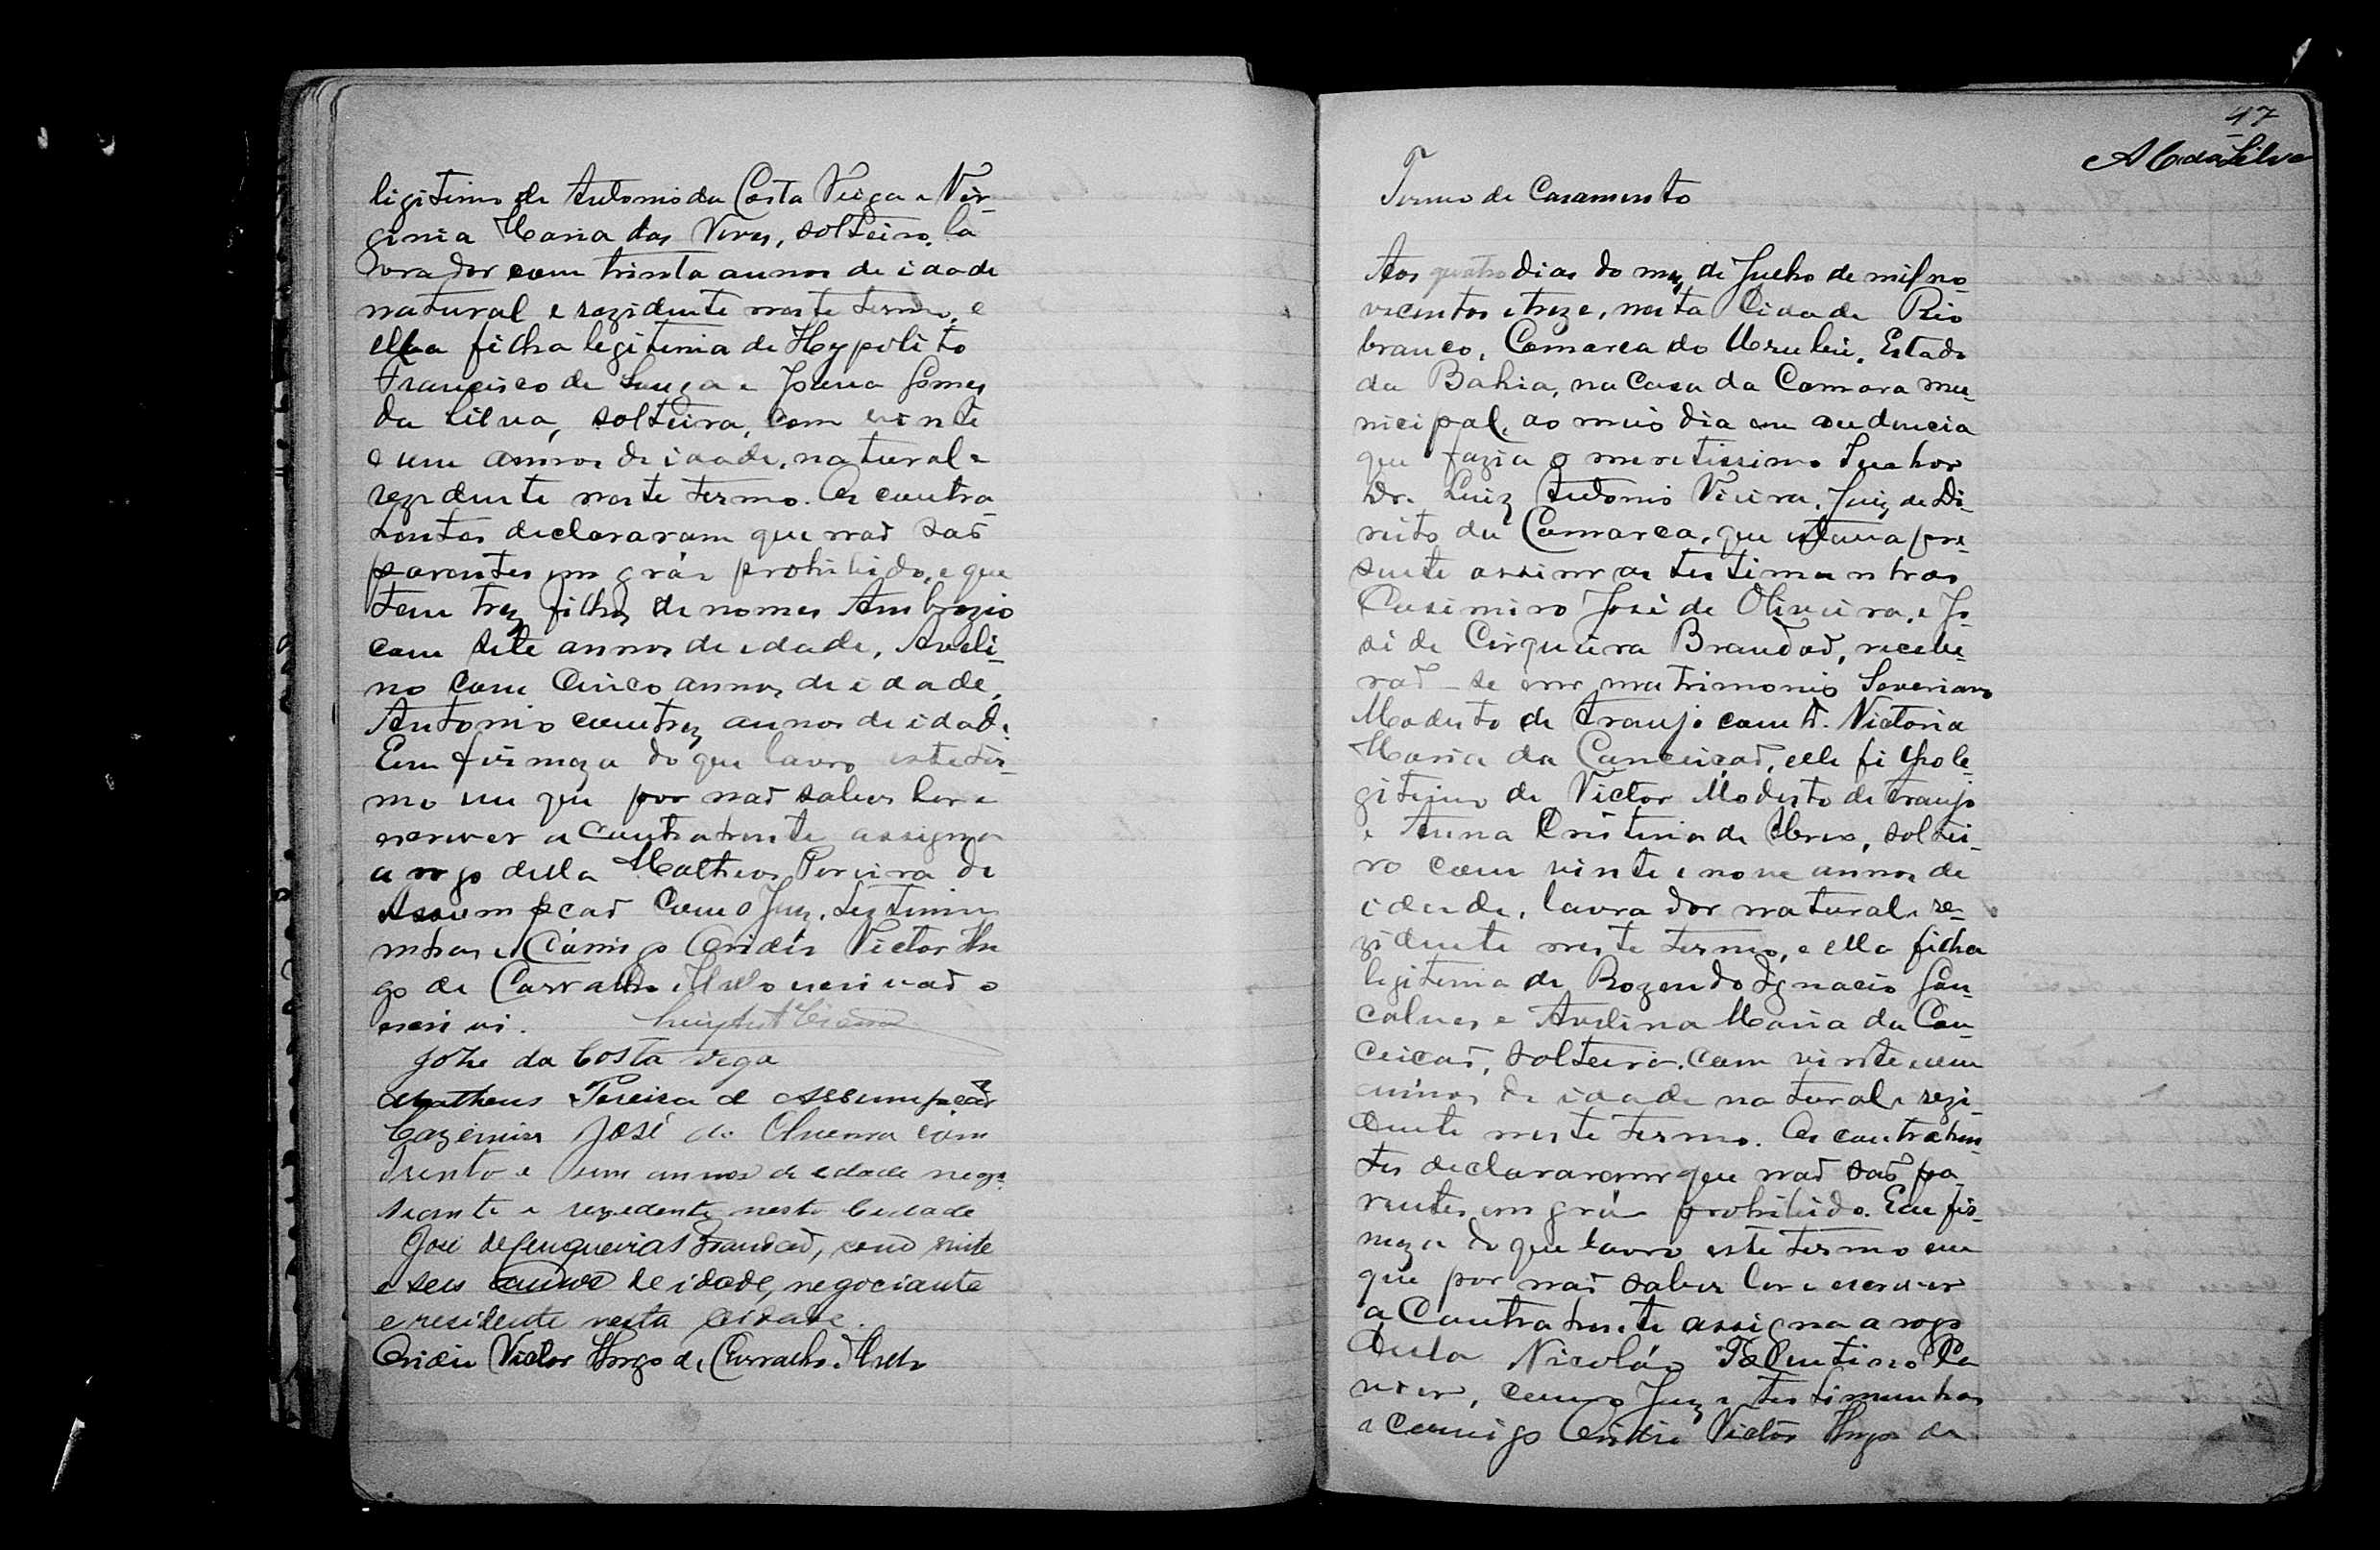 ligitimo de Antonio da Costa Veiga e Vir-
ginia Maria das Neves, solteiro, la
vrador com trinta annos de idade
natural e rezidente neste termo, e
ella filha legitima de Hypolito
Francisco de Souza e Joana Gomes
da Silva, solteira, com vinte
e um annos de idade, natural e
rezidente neste termo. Os contra-
hentes declararam que naõ saõ
parentes em gráu prohibido, e que
tem trez filhos de nomes Ambrozio
com sete annos de edade, Aveli-
no com Cinco annos de idade,
Antonio com trez annos de idade.
Em firmeza do que lavro este ter-
mo em que por naõ saber ler e
escrever a Contrahente assigna
a rogo della Matheus Pereira de
Assumpcaõ Com o Juiz, testimu
nhas e Cómigo Ovidio Victor Hu
go de Carvalho Mello escrivaõ o
escrivi.
Johe da Costa vega
Matheus Pereira d Assumpcaõ
Cazimiro José de Oliveira com
trinta e um annos de edade nego
siante e rezedente nesta Cidade
José de Cerqueira Brandaõ, com vinte
e seis annos de idade, negociante
e residente nesta Cidade.
Ovidio Victor Hugo de Carvalho Mello
47
A C da Silva
Termo de Casamento
Aos quatro dias do mez de Julho de mil no-
vecentos e treze, nesta Cidade Rio
branco, Comarca do Urubú, Estado
da Bahia, na Casa da Camara mu-
nicipal, ao meio dia em audencia
que fazia o meretissimo Senhor
Dr. Luiz Antonio Vieira, Juiz de Di-
reito da Comarca, que estava pre-
sente assim as testimunhas
Casimiro José de Oliveira, e Jo-
sé de Cirqueira Brandaõ, recebe-
raõ-se em matrimonio Severiano
Modesto de Araujo com D. Victoria
Maria da Conceiçaõ, elle filho le-
gitimo de Victor Modesto de Araujo
e Anna Cristina de Abreu, soltei-
ro com vinte e nove annos de
idade, lavrador natural e re-
zidente neste termo, e ella filha
legitima de Rozendo Ignacio Gon-
calves e Avelina Maria da Con-
ceicaõ, solteira, com vinte e um
annos de idade natural e rezi-
dente neste termo. Os contrahen-
tes declararam que naõ saõ pa-
rentes em gráu prohibido. Em fir-
meza do que lavro este termo em
que por naõ saber ler e escrever
a Contrahente assigna a rogo
della Nicoláo Tolentino
com o Juiz e testimunhas
e comigo Ovidio Victor Hugo de